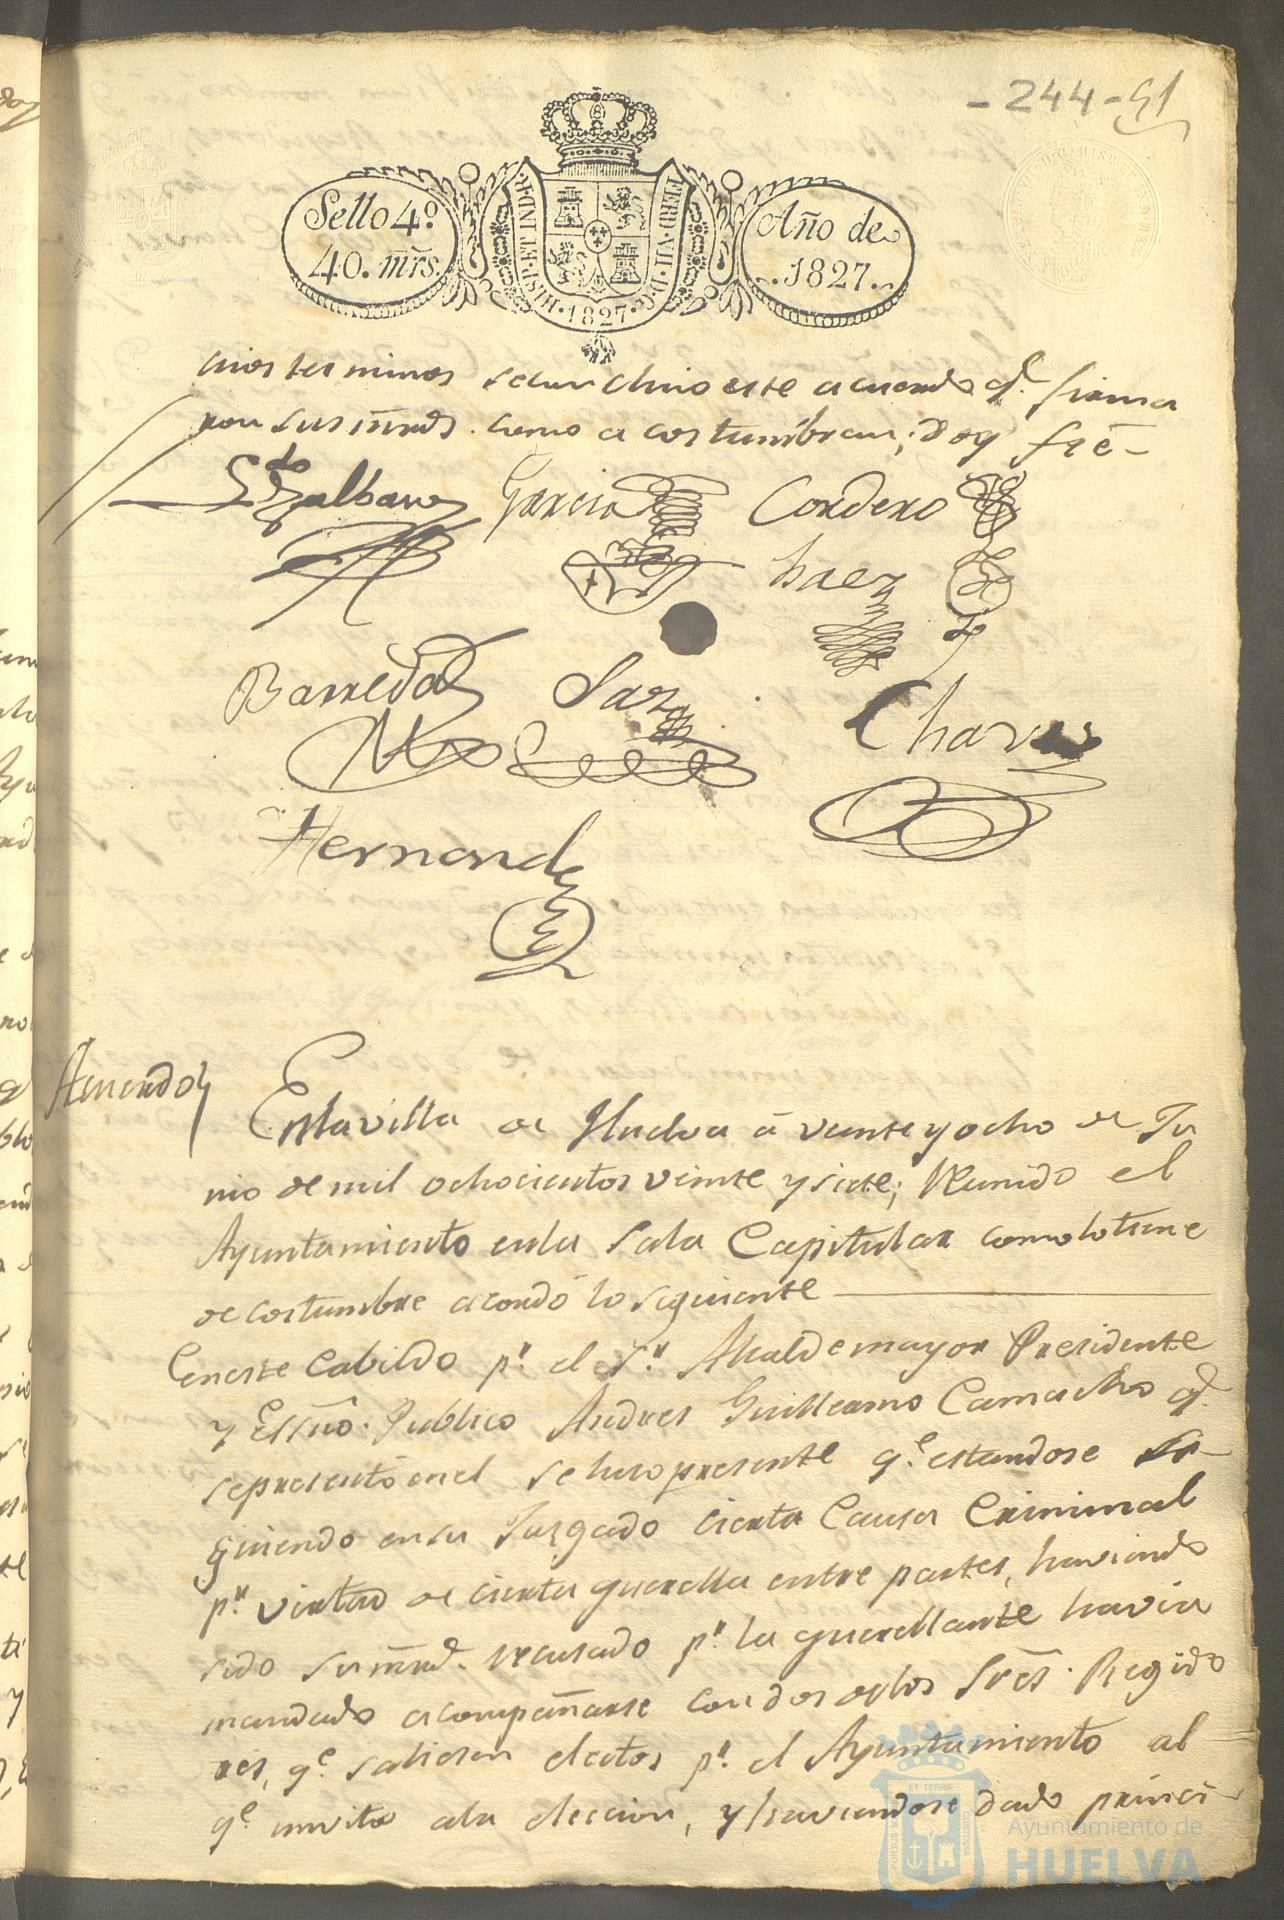 - 244 - 51
Sello 4º
40. mrs.
FERD·VII·D·G·HISP·ET IND·R·
·1827·
Año de
1827.
cuios terminos se concluio este acuerdo q.e firma
ron sus mrds. como acostumbran; Doy fée-
Ldo Galbarez Garcia Cordero
haez
Barreda Saz Chaves
Hernandz
Acuerdo
En la villa de Huelva á veinte y ocho de Ju
nio de mil ochocientos veinte y siete; Reunido el
Ayuntamiento en la Sala Capitular como lo tiene
de costumbre acordó lo siguiente
En este Cabildo p.r el S.r Alcalde mayor Presidente
y Essno. Publico Andres Guillermo Camacho q.e
se presentó en el se hizo presente q.e estandose si-
guiendo en su Juzgado cierta Causa Criminal
p.r virtud de cierta querella entre partes, haviendo
sido su mrd. recusado p.r la querellante havia
mandado acompañarse con dos de los Sres. Regido
res, q.e saliesen electos p.r el Ayuntamiento al
q.e invito a la eleccion, y haviendose dado princi-
PORTUS MARIS
ET TERRAE
CUSTODIA
Ayuntamiento de
HUELVA